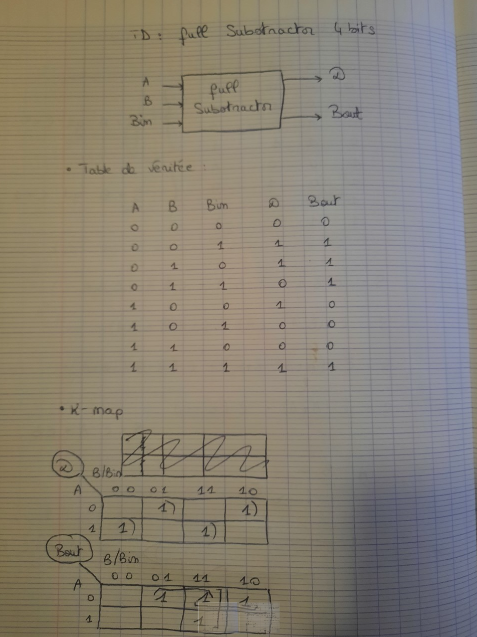 TD: full Subotractor 4 bits
A
B
Bin
full
Subotractor
D
Bout
• Table de véritée :
A B Bin D Bout
0 0 0 0 0
0 0 1 1 1
0 1 0 1 1
0 1 1 0 1
1 0 0 1 0
1 0 1 0 0
1 1 0 0 0
1 1 1 1 1
• K-map
D
B/Bin
A 00 01 11 10
0 1) 1)
1 1) 1)
Bout
B/Bin
A 00 01 11 10
0 1 1 1
1 1